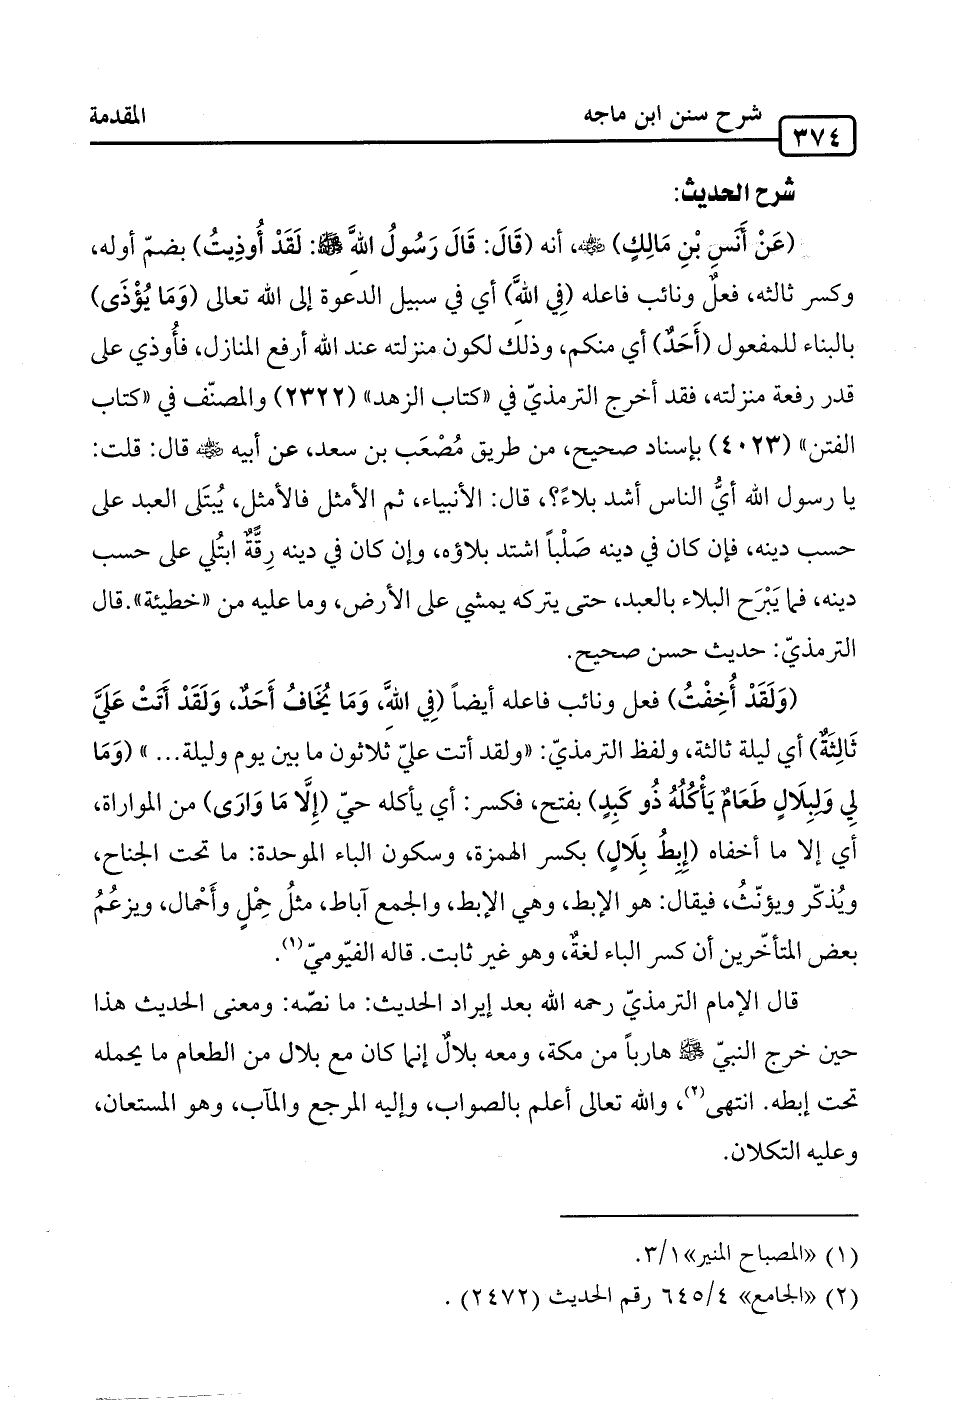 شرح سنن ابن ماجه المقدمة
٣٧٤
شرح الحديث:
(عَنْ أَنَسِ بْنِ مَالِكٍ) رضي الله عنه، أنه (قَالَ: قَالَ رَسُولُ اللهِ ﷺ: لَقَدْ أُوذِيتُ) بضمّ أوله،
وكسر ثالثه، فعلٌ ونائب فاعله (فِي اللهِ) أي في سبيل الدعوة إلى الله تعالى (وَمَا يُؤْذَى)
بالبناء للمفعول (أَحَدٌ) أي منكم، وذلك لكون منزلته عند الله أرفع المنازل، فأُوذي على
قدر رفعة منزلته، فقد أخرج الترمذيّ في «كتاب الزهد» (٢٣٢٢) والمصنّف في «كتاب
الفتن» (٤٠٢٣) بإسناد صحيح، من طريق مُصْعَب بن سعد، عن أبيه رضي الله عنه قال: قلت:
يا رسول الله أيُّ الناس أشد بلاءً؟، قال: الأنبياء، ثم الأمثل فالأمثل، يُبتَلى العبد على
حسب دينه، فإن كان في دينه صَلْباً اشتد بلاؤه، وإن كان في دينه رِقَّةٌ ابتُلي على حسب
دينه، فما يَبْرَح البلاء بالعبد، حتى يتركه يمشي على الأرض، وما عليه من «خطيئة».قال
الترمذيّ: حديث حسن صحيح.
(وَلَقَدْ أُخِفْتُ) فعل ونائب فاعله أيضاً (فِي اللهِ، وَمَا يُخَافُ أَحَدٌ، وَلَقَدْ أَتَتْ عَلَيَّ
ثَالِثَةٌ) أي ليلة ثالثة، ولفظ الترمذيّ: «ولقد أتت عليّ ثلاثون ما بين يوم وليلة... » (وَمَا
لِي وَلِبِلَالٍ طَعَامٌ يَأْكُلُهُ ذُو كَبِدٍ) بفتح، فكسر: أي يأكله حيّ (إِلَّا مَا وَارَى) من المواراة،
أي إلا ما أخفاه (إِبِطُ بِلَالٍ) بكسر الهمزة، وسكون الباء الموحدة: ما تحت الجناح،
ويُذكّر ويؤنّثُ، فيقال: هو الإبط، وهي الإبط، والجمع آباط، مثلُ حِمْلٍ وأَحْمال، ويزعُمُ
بعض المتأخّرين أن كسر الباء لغةٌ، وهو غير ثابت. قاله الفيّوميّ(١).
قال الإمام الترمذيّ رحمه الله بعد إيراد الحديث: ما نصّه: ومعنى الحديث هذا
حين خرج النبيّ ﷺ هارباً من مكة، ومعه بلالٌ إنما كان مع بلال من الطعام ما يحمله
تحت إبطه. انتهى(٢)، والله تعالى أعلم بالصواب، وإليه المرجع والمآب، وهو المستعان،
وعليه التكلان.
(١) «المصباح المنير»٣/١.
(٢) «الجامع» ٦٤٥/٤ رقم الحديث (٢٤٧٢) .